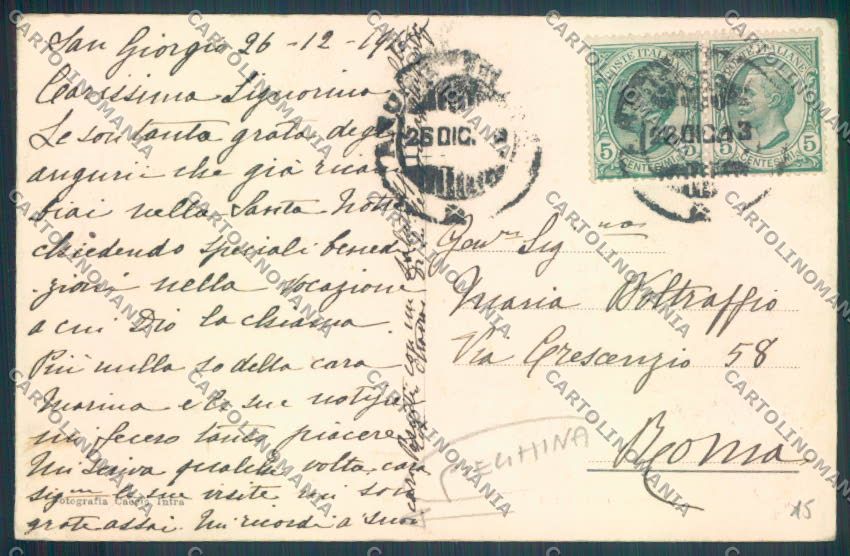 San Giorgio 26-12-19
Carissima Signorina
Le son tanto grata degli
auguri che già ricam
biai nella Santa Notte
chiedendo speciali bened
izioni nella vocazione
a cui Dio la chiama.
Più nulla so della cara
Marina e le sue notizie
mi fecero tanto piacere
Mi scriva qualche volta, cara
sig.na le sue visite mi son
grate assai. Mi ricordi a suoi
cari
Fotografia Caccia Intra
26 DIC.
POSTE ITALIANE
POSTE ITALIANE
5 5
CENTESIMI
5 5
CENTESIMI
26 DIC 13
Gen.ma Sig.na
Maria Boltraffio
Via Crescenzio 58
Roma
15
CARTOLINOMANIA